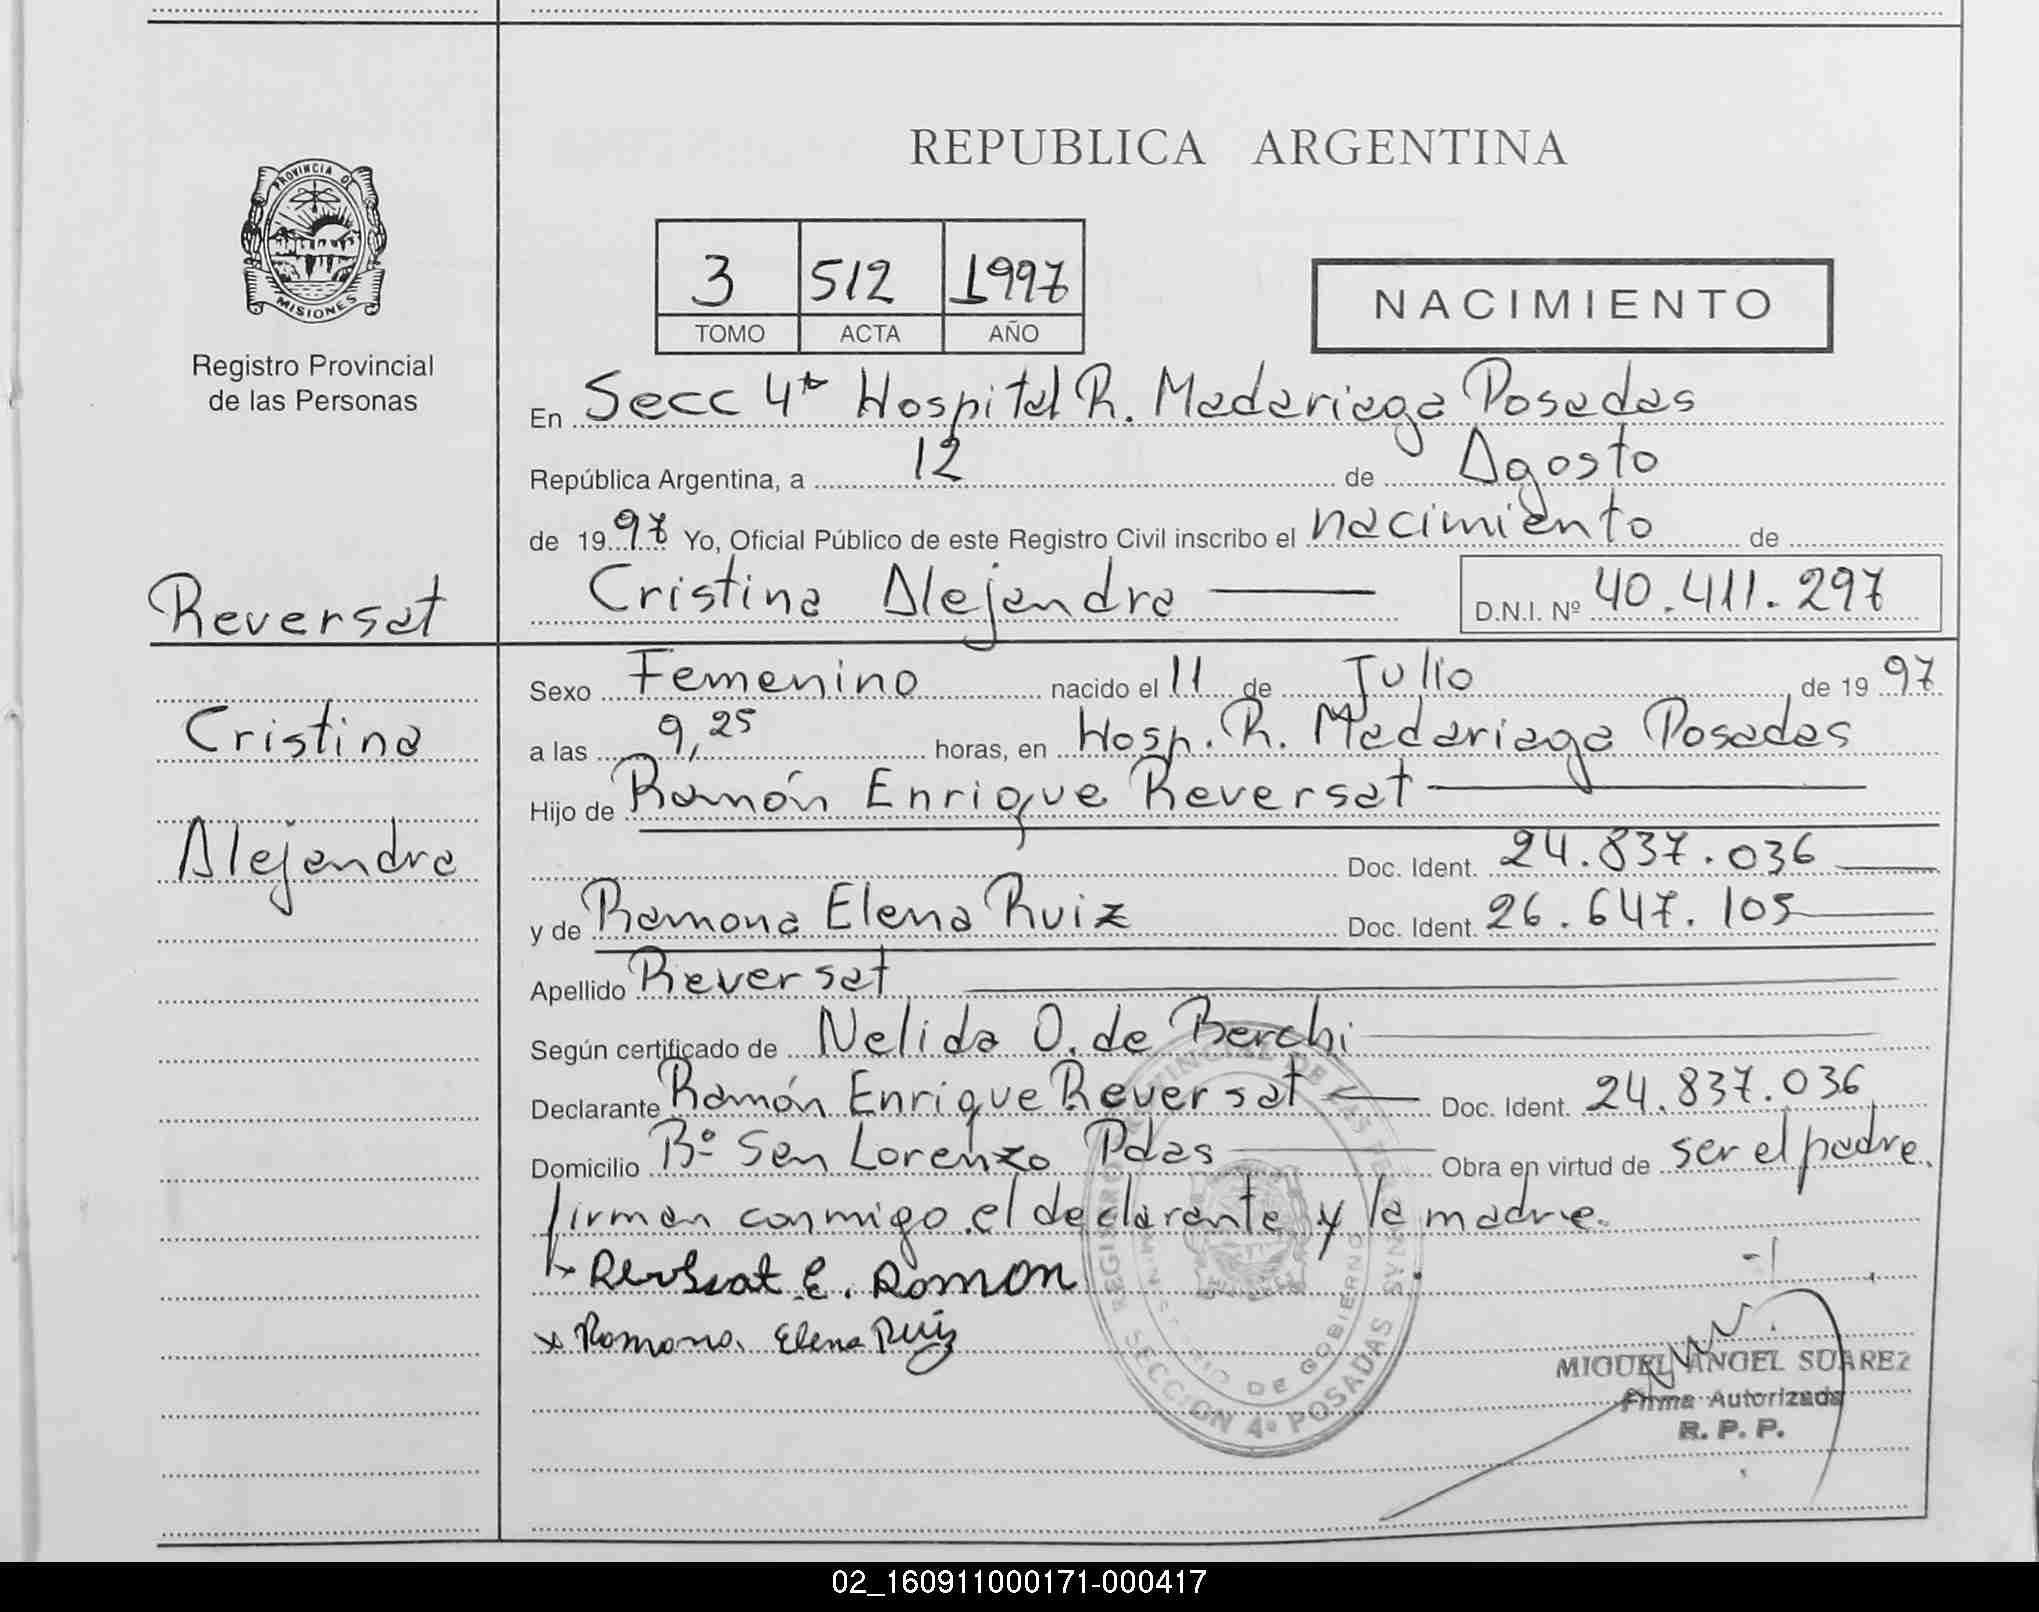 REPUBLICA ARGENTINA
PROVINCIA DE
MISIONES
Registro Provincial
de las Personas
3 512 1997
TOMO ACTA AÑO
NACIMIENTO
En Secc 4ta Hospital R. Madariaga Posadas
República Argentina, a 12 de Agosto
de 1997 Yo, Oficial Público de este Registro Civil inscribo el nacimiento de
Cristina Alejandra D.N.I. Nº 40.411.297
Reversat
Cristina
Alejandra
Sexo Femenino nacido el 11 de Julio de 1997
a las 9,25 horas, en Hosp. R. Madariaga Posadas
Hijo de Ramón Enrique Reversat
Doc. Ident. 24.837.036
y de Ramona Elena Ruiz Doc. Ident. 26.647.105
Apellido Reversat
Según certificado de Nelida O. de Berchi
Declarante Ramón Enrique Reversat Doc. Ident. 24.837.036
Domicilio Bº San Lorenzo Pdas Obra en virtud de ser el padre.
firman conmigo el declarante y la madre.
x Reversat E. Ramon
x Ramona. Elena Ruiz
REGISTRO PROVINCIAL DE LAS PERSONAS
MINISTERIO DE GOBIERNO
SECCION 4º POSADAS
MIGUEL ANGEL SUAREZ
Firma Autorizada
R. P. P.
02_160911000171-000417